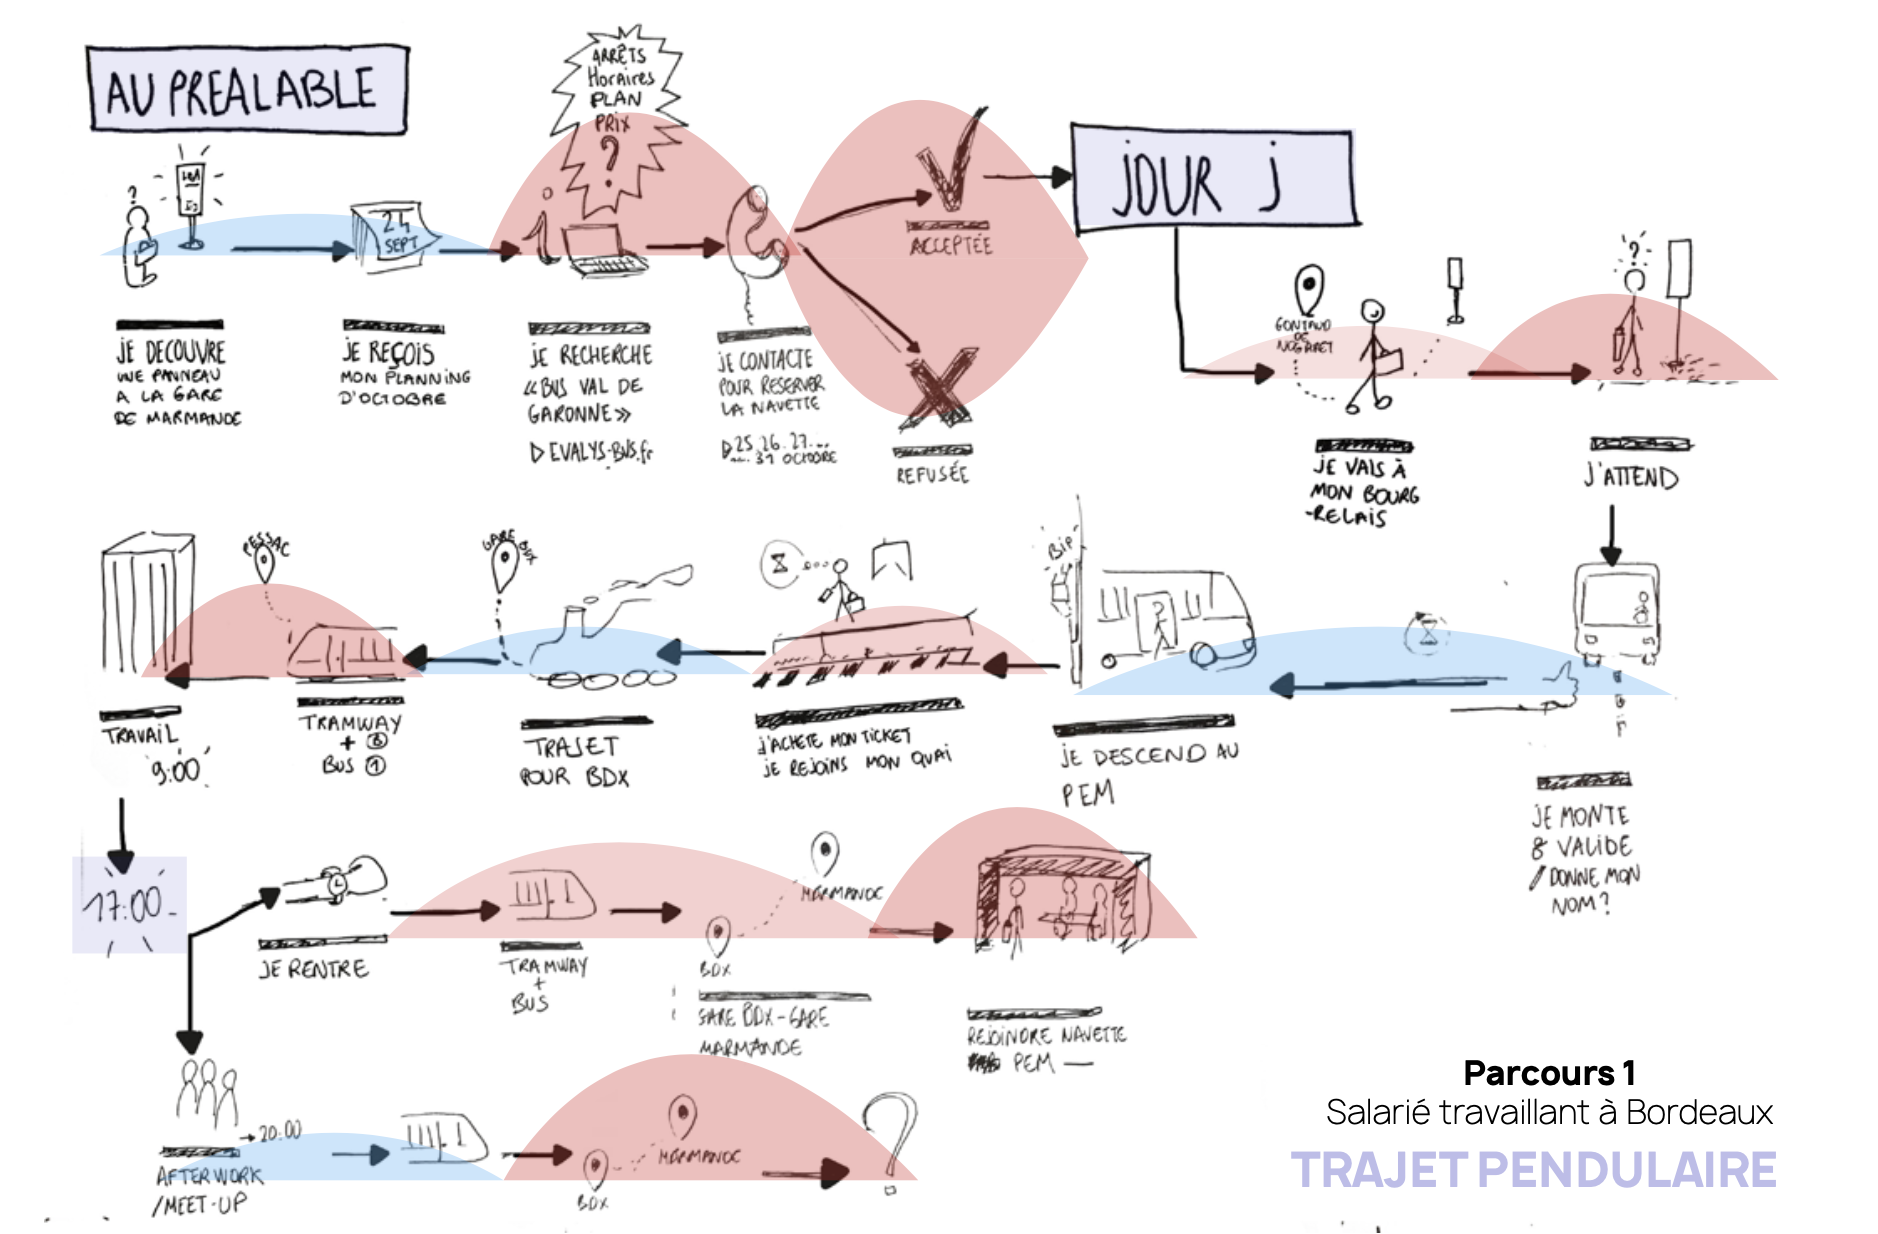 AU PREALABLE
ARRÊTS
HORAIRES
PLAN
PRIX
?
?
24
SEPT
JE DECOUVRE
UNE PANNEAU
A LA GARE
DE MARMANDE
JE REÇOIS
MON PLANNING
D'OCTOBRE
JE RECHERCHE
«BUS VAL DE
GARONNE»
EVALYS-BUS.fr
JE CONTACTE
POUR RESERVER
LA NAVETTE
25.26.27...
... 31 OCTOBRE
ACCEPTÉE
REFUSÉE
JOUR J
GONTAUD
DE
NOGARET
JE VAIS À
MON BOURG
-RELAIS
?
J'ATTEND
JE MONTE
& VALIDE
/ DONNE MON
NOM?
BIP
JE DESCEND AU
PEM
J'ACHETE MON TICKET
JE REJOINS MON QUAI
GARE BDX
TRAJET
POUR BDX
PESSAC
TRAMWAY
+ B
BUS 1
TRAVAIL
9:00
17:00
JE RENTRE
TRAMWAY
+
BUS
BDX
MARMANDE
GARE BDX-GARE
MARMANDE
REJOINDRE NAVETTE
PEM
→20:00
AFTERWORK
/MEET-UP
BDX
MARMANDE
?
Parcours 1
Salarié travaillant à Bordeaux
TRAJET PENDULAIRE